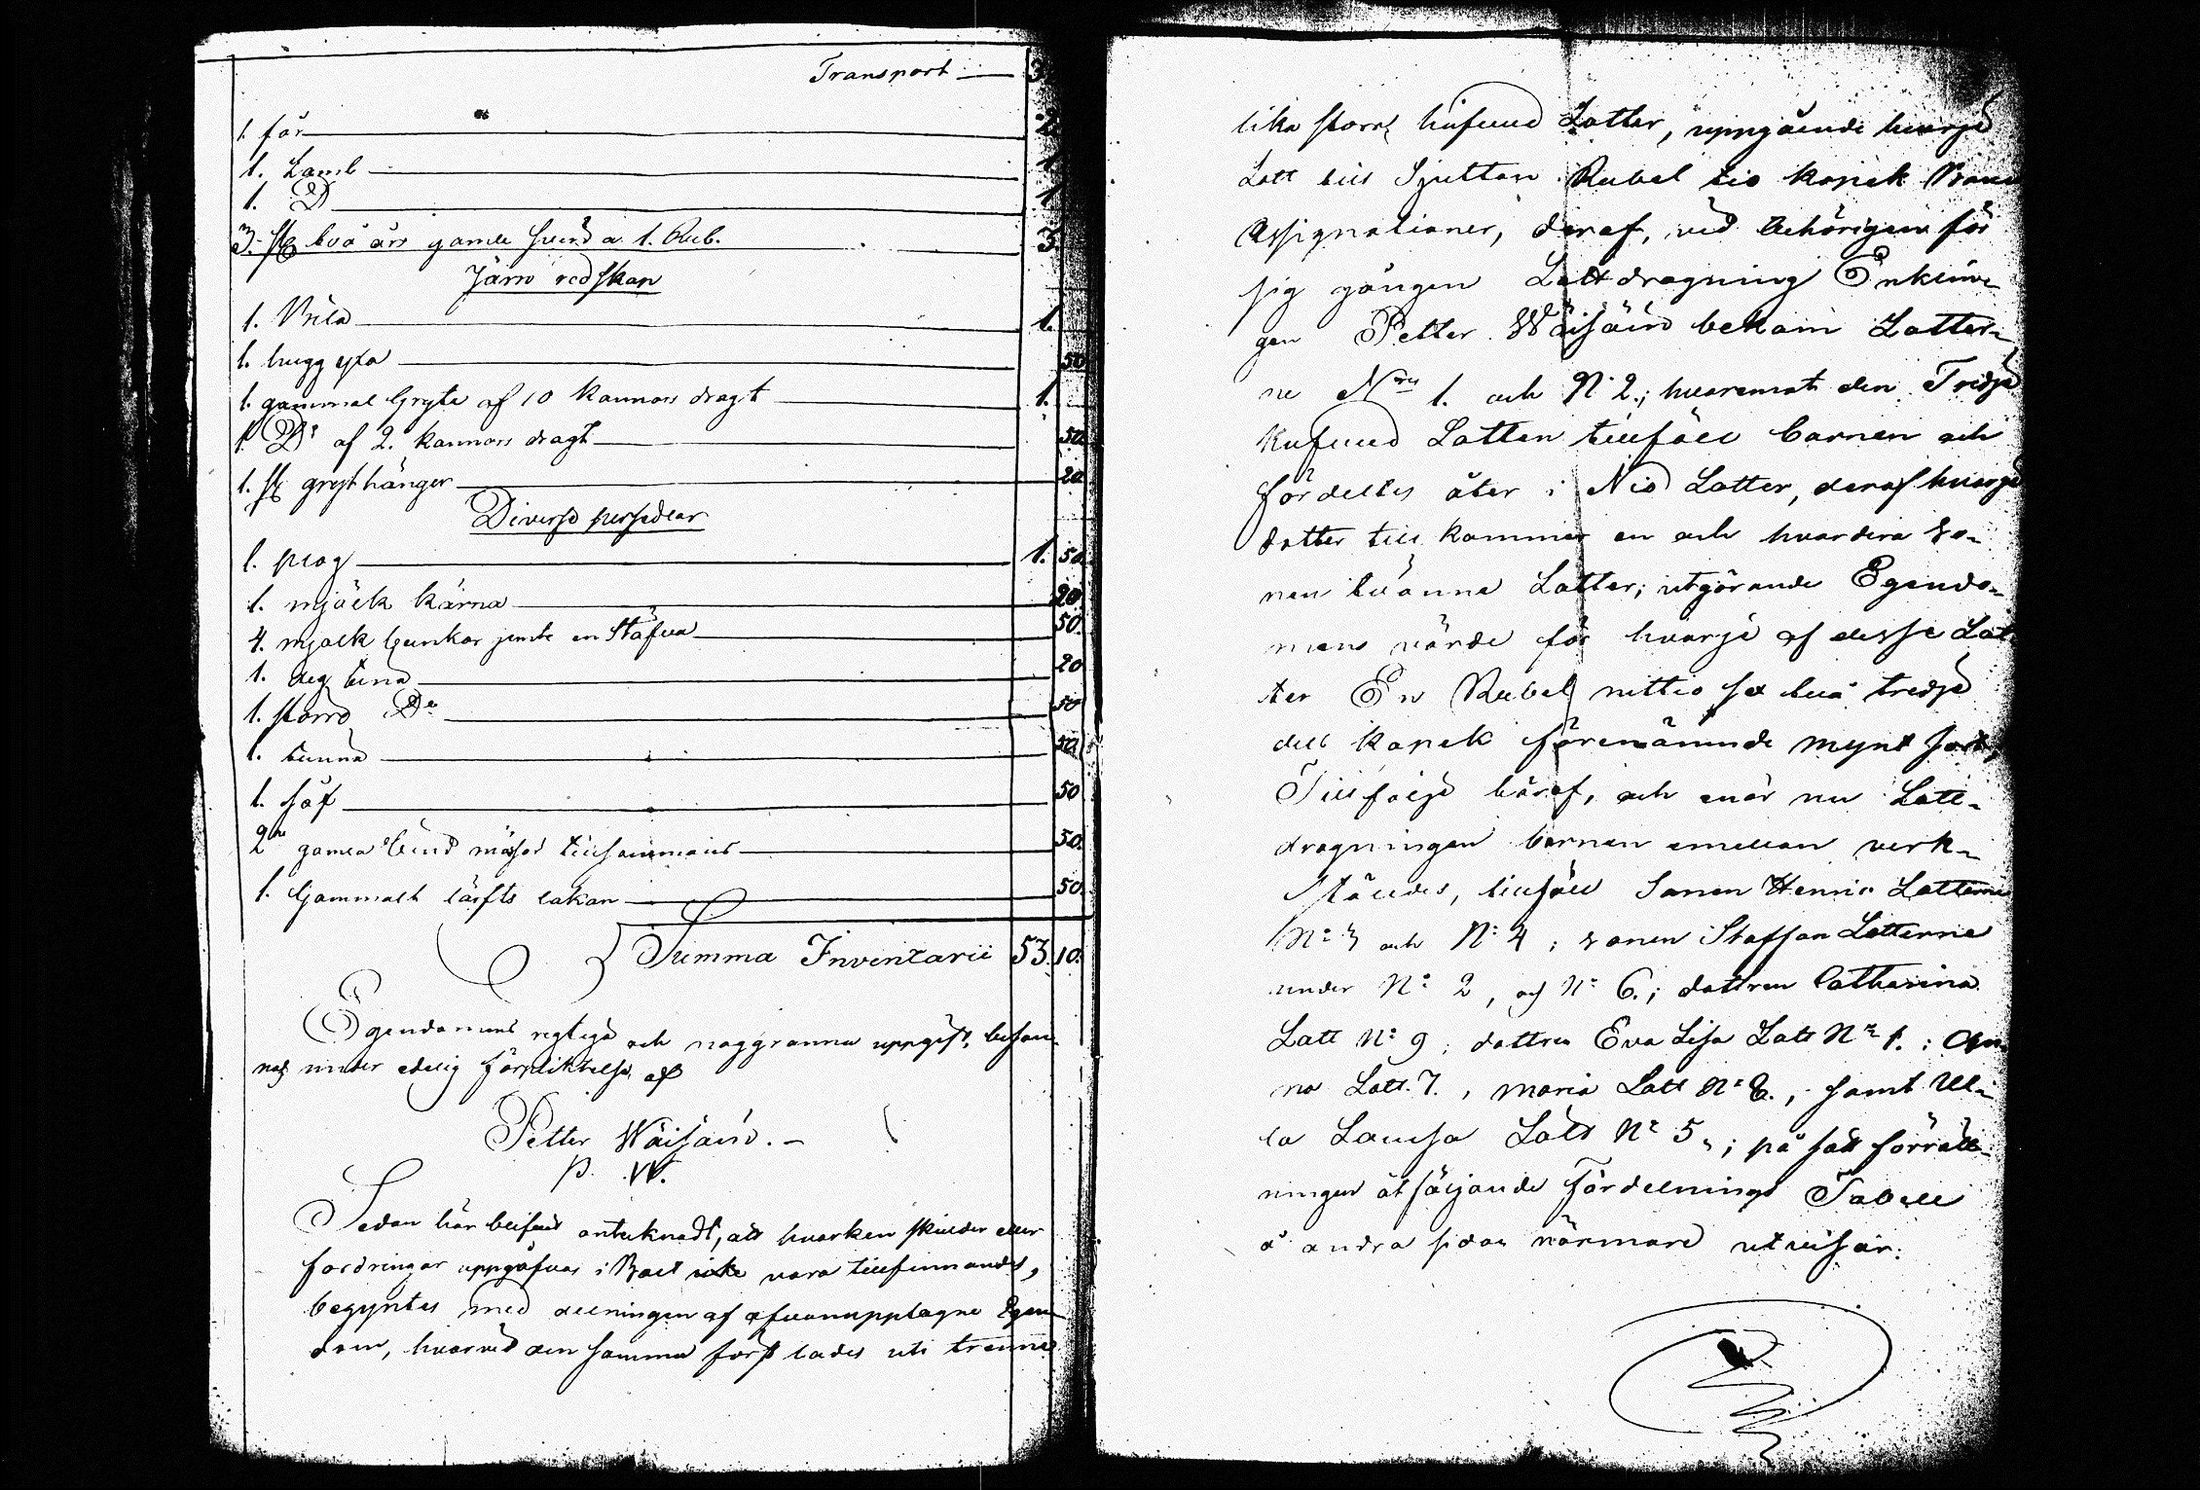 Transport 3
1. får 2
1. Lamb 1
1. D 1
3. st två års gamla svin a 1. Rub. 3
Järn redskap
1. Bila 1.
1. hugg yxa 50
1. gammal Gryta af 10 kannors dragt 1.
1. Do af 2. kannors dragt 50.
1. st grythänger 20
Diverse persedlar
1. plog 1. 50
1. mjölk kärna 20
4. mjölk bunkar jemte en Stäfva 50.
1. deg tina 20
1. större Do 50
1. tunna 50
1. såf 50
2ne gamla tillsammans 50.
1. Gammalt lärfts lakan 50.
Summa Inventarii 53. 10.
Egendomens rigtiga och noggranna uppgift, besan-
nas under edelig förpliktelse af
Petter Wäisäin. -
P. W.
Sedan här blifvit anteknadt, att hvarken skulder eller
fordringar uppgåfvos i Boet vara tillfinnandes,
begyntes med delningen af ofvanupptagne Egen-
dom, hvarvid den samma först lades uti trenne
lika stora hufvud Lotter, uppgående hvarje
Lott till Sjutton Rubel tio kopek Banco
Assignationer, deraf, vid behörigen för
sig gången Lottdragning Enklin-
gen Petter Wäisäin bekom Lotter-
ne Nris 1. och No 2.; hvaremot den Tredje
hufvud Lotten tillföll barnen och
fördeltes åter i Nio Lotter, deraf hvarje
dotter till kommer en och hvardera so-
nen tvänne Lotter; utgörande Egendo-
mens värde för hvarje af desse Lot-
ter En Rubel nittio sex två tredje
dels kopek förenämnde mynt sort,
Till följe häraf, och enär nu Lott-
dragningen barnen emellan verk-
ställdes, tillföll Sonen Henric Lotterne
No 3 och No 4; sonen Staffan Lotterne
under No 2, och No 6.; dottren Catharina
Lott No 9; dottren Eva Lisa Lott No 1.; An-
na Lott. 7., Maria Lott No 8., samt Ul-
la Lovisa Lott No 5.; på sätt förrätt-
ningen åtföljande Fördelnings Tabell
å andra sidan närmare utvisar.